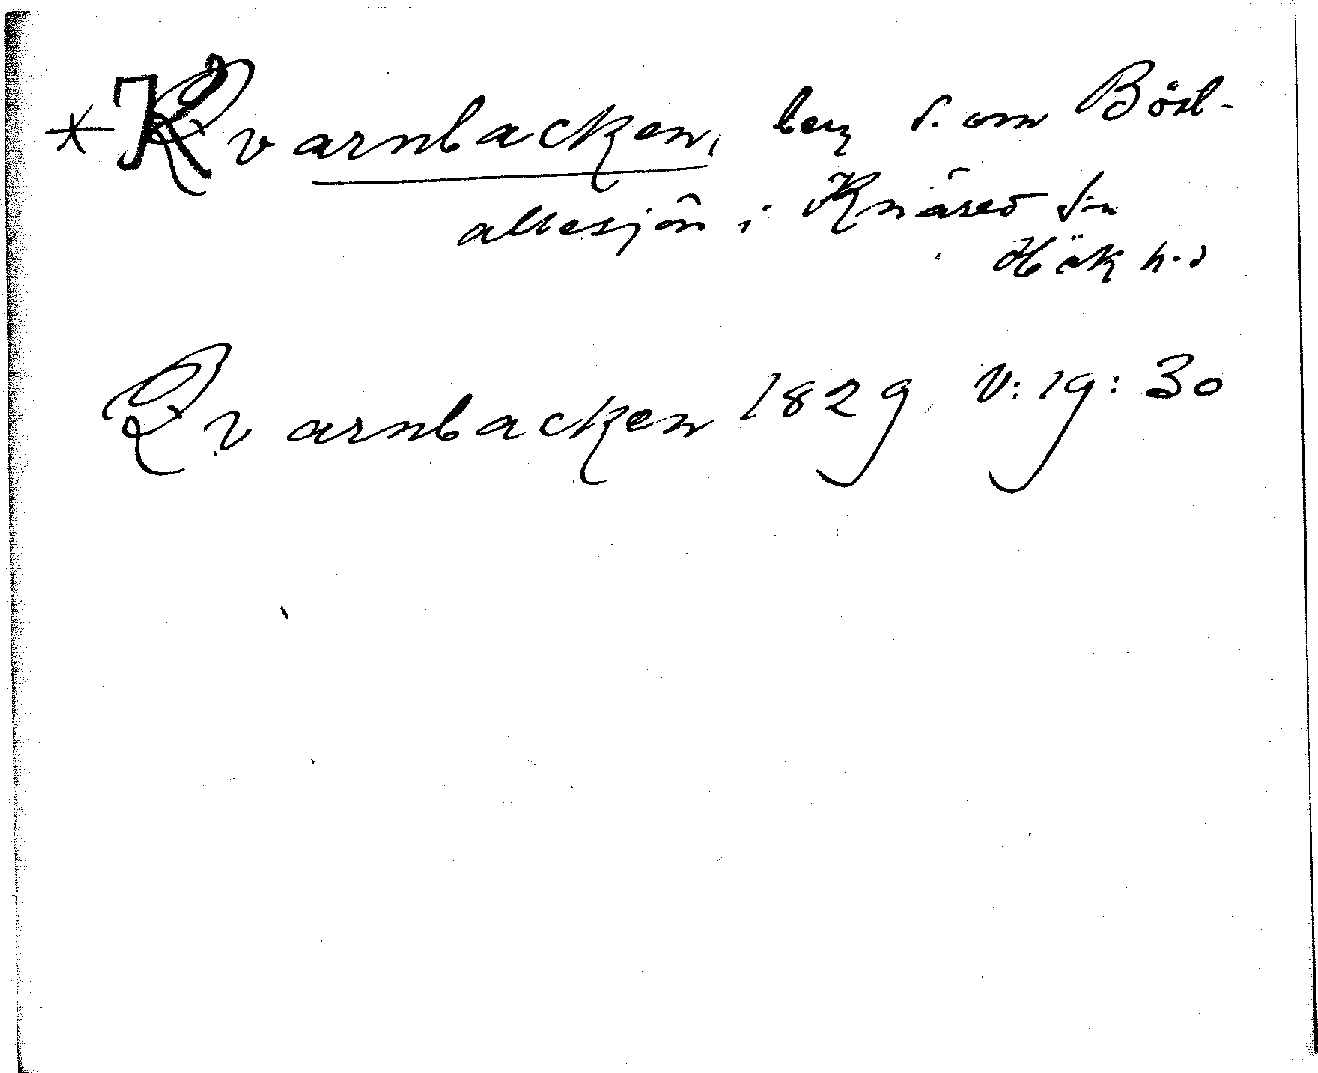 * Kvarnbacken, berg S. om Bösl-
allesjön i Knäred s-n
Hök h-d
Qvarnbacken 1829 V: 19: 30